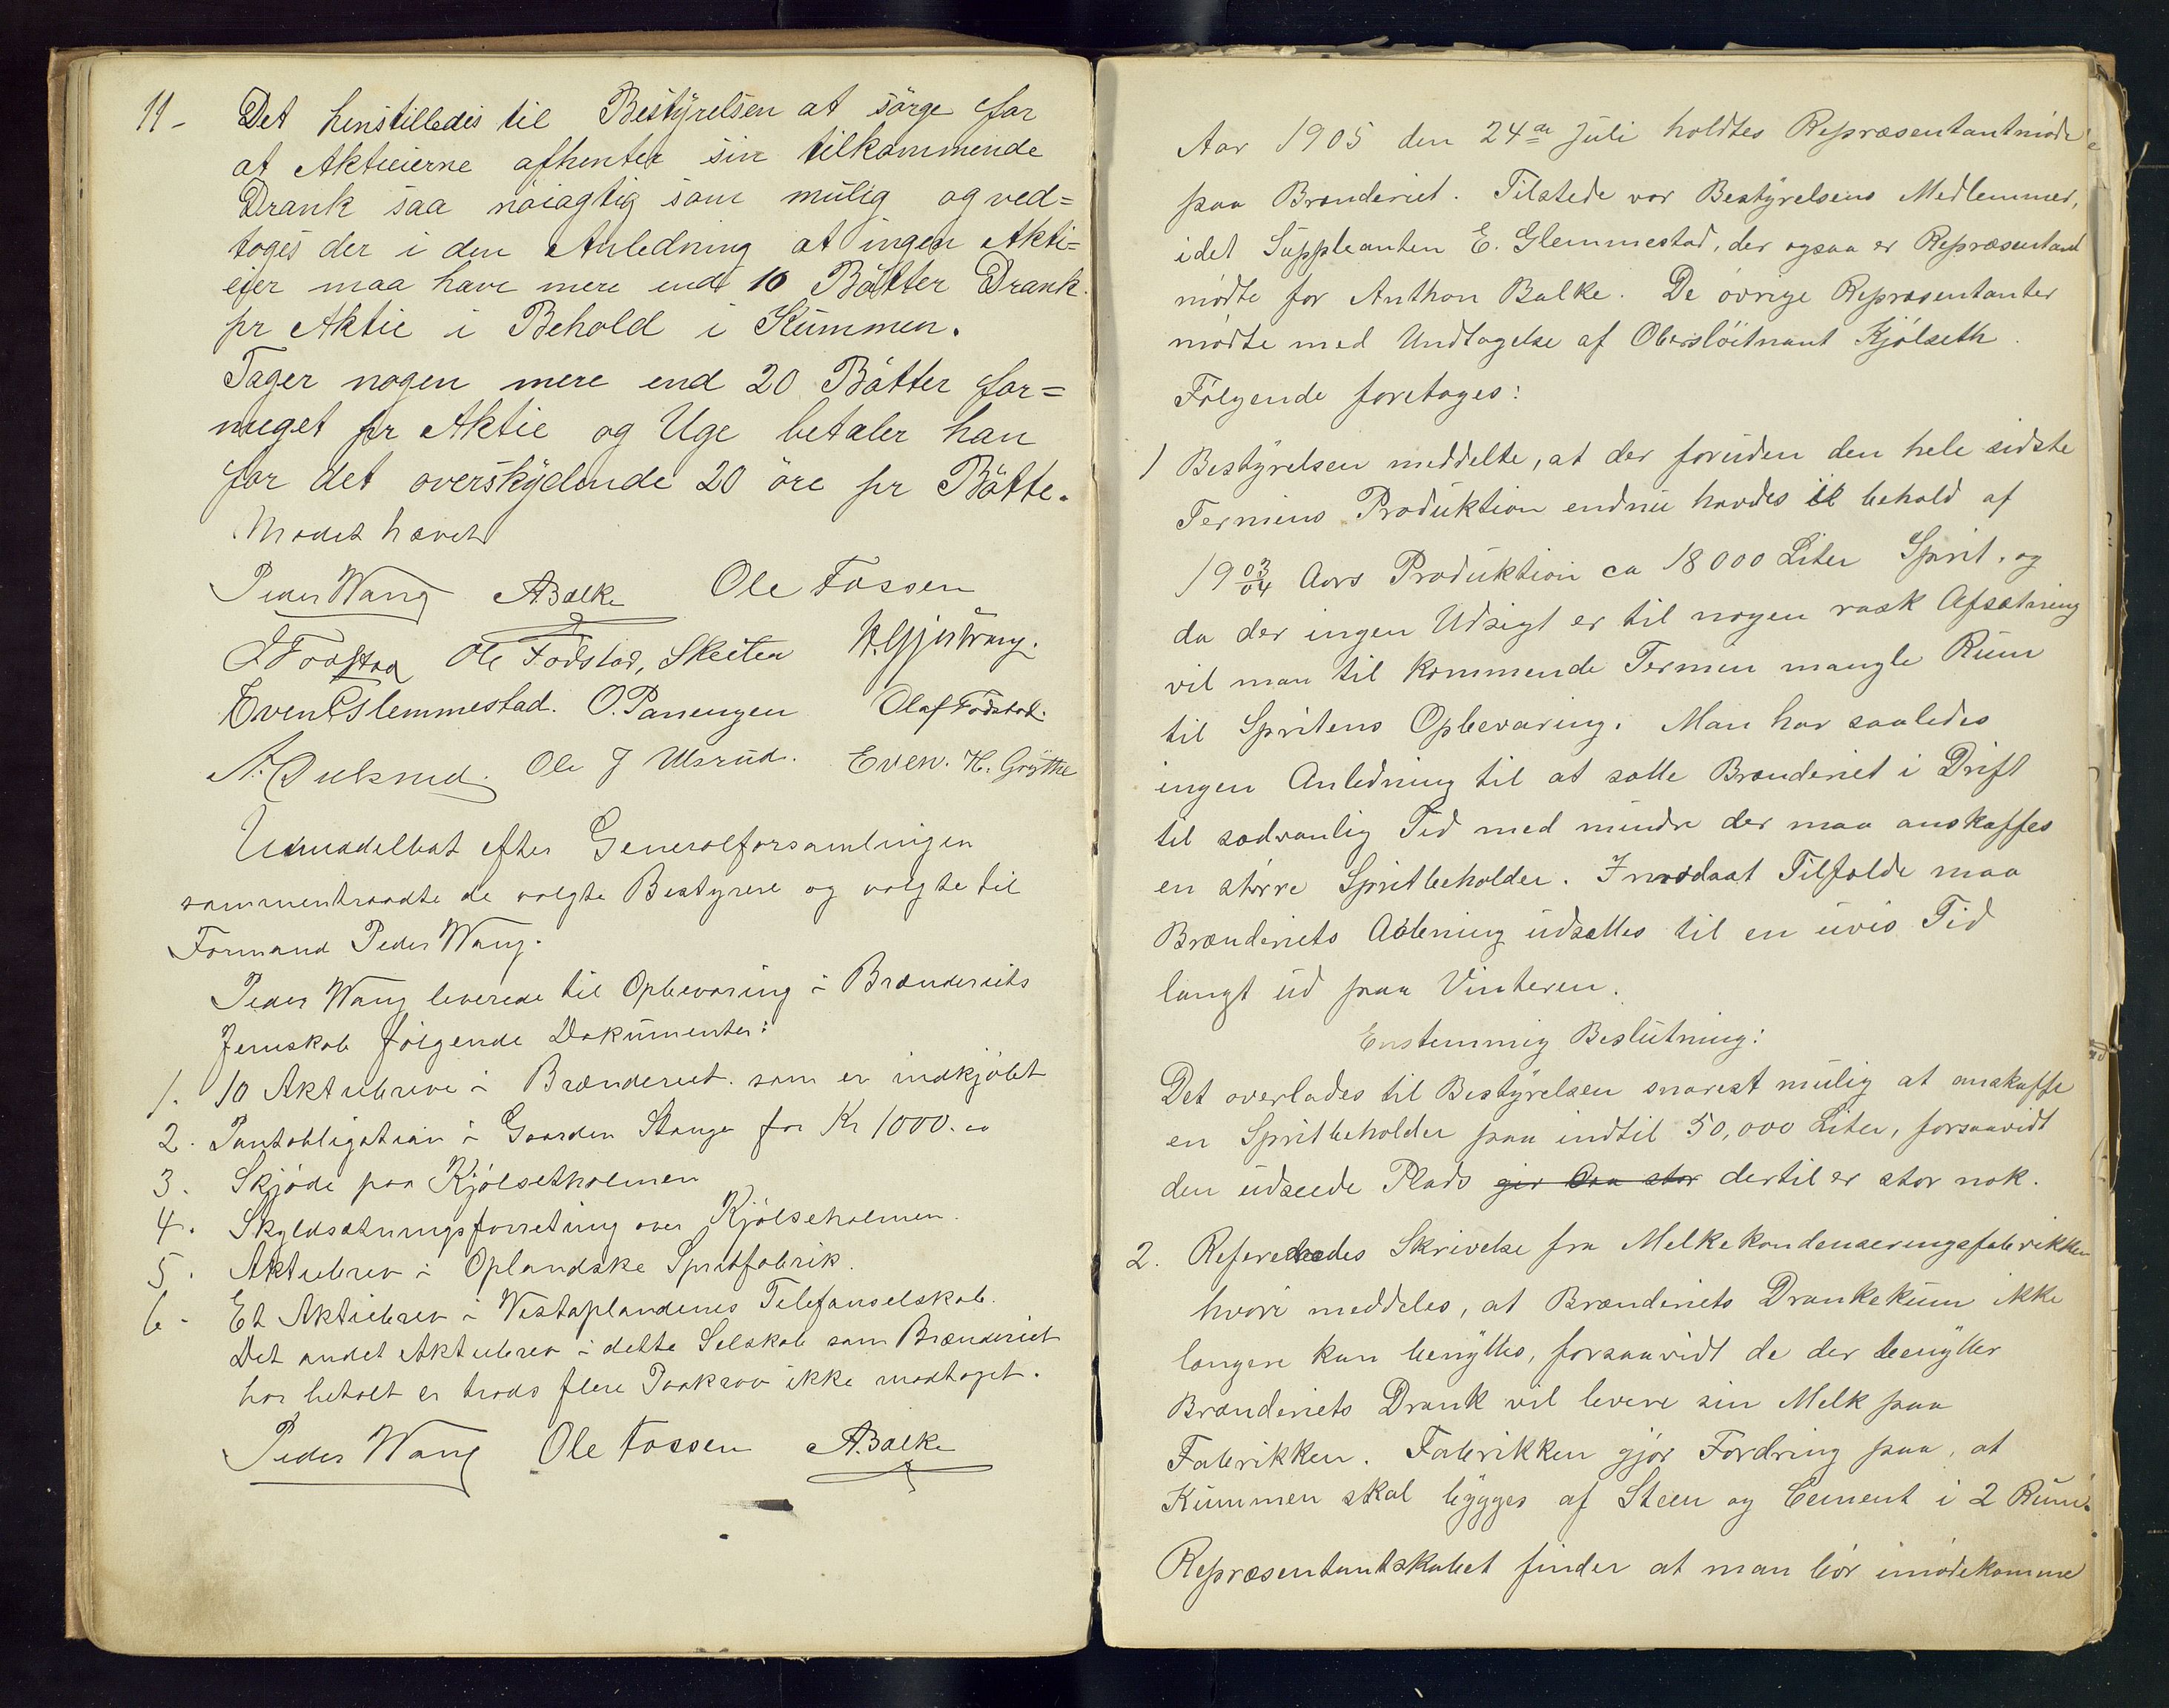 11- Det henstilledes til Bestyrelsen at sørge for
at Aktieierne afhenter sin tilkommende
Drank saa nøiagtig som mulig og ved=
toges der i den Anledning at ingen Akti=
eier maa have mere end 10 Bøtter Drank
pr Aktie i Behold i Kummen.
Tager nogen mere end 20 Bøtter for=
meget pr Aktie og Uge betaler han
for det overskydende 20 øre pr Bøtte.
Mødet hævet
Peder Wang ABalke Ole Fossen
Ole Fodstad, Skeiten
Even Glemmestad. O. Panengen Olaf Fodstad.
Ole J Ulsrud. Even. H. Grøthe
Umiddelbat efter Generalforsamlingen
sammentraadte de valgte Bestyrere og valgte til
Formand Peder Wang.
Peder Wang leverede til Opbevaring i Brænderiets
Jernskab følgende Dokumenter:
1. 10 Aktiebreve i Brænderiet. som er indkjøbt
2. Pantobligation i Gaarden Stange for Kr 1000.00
3. Skjøde paa Kjølsetholmen
4. Skyldsætningsforretning over Kjølseholmen.
5. Aktiebrev i Oplandske Spritfabrik.
6. Et Aktiebrev i Vestoplandenes Telefonselskab.
Det andet Aktiebrev i dette Selskab som Brænderiet
har betalt er trods flere Paakrav ikke modtaget.
Peder Wang Ole Fossen A.Balke
Aar 1905 den 24de Juli holdtes Repræsentantmøde
paa Brænderiet. Tilstede var Bestyrelsens Medlemmer,
idet Suppleanten E. Glemmestad, der ogsaa er Repræsentant
mødte for Anthon Balke. De øvrige Repræsentanter
mødte med Undtagelse af Oberstløitnant Kjølseth.
Følgende foretoges:
1 Bestyrelsen meddelte, at der foruden den hele sidste
Termins Produktion endnu havdes i behold af
19 03/04 Aars Produktion ca 18000 Liter Sprit, og
da der ingen Udsigt er til nogen rask Afsætning
vil man til kommende Termin mangle Rum
til Spritens Opbevaring. Man har saaledes
ingen Anledning til at sætte Brænderiet i Drift
til sædvanlig Tid med mindre der maa anskaffes
en større Spritbeholder. I modsat Tilfælde maa
Brænderiets Aabning udsættes til en uvis Tid
langt ud paa Vinteren.
Enstemmig Beslutning:
Det overlades til Bestyrelsen snarest mulig at anskaffe
en Spritbeholder paa indtil 50,000 Liter, forsaavidt
den udseede Plads gir saa stor dertil er stor nok.
2. Refereredes Skrivelse fra Melkekondenseringsfabrikken
hvori meddeles, at Brænderiets Drankekum ikke
længere kan benyttes, forsaavidt de der benytter
Brænderiets Drank vil levere sin Melk paa
Fabrikken. Fabrikken gjør Fordring paa, at
Kummen skal bygges af Steen og Cement i 2 Rum.
Repræsentantskabet finder at man bør imødekomme